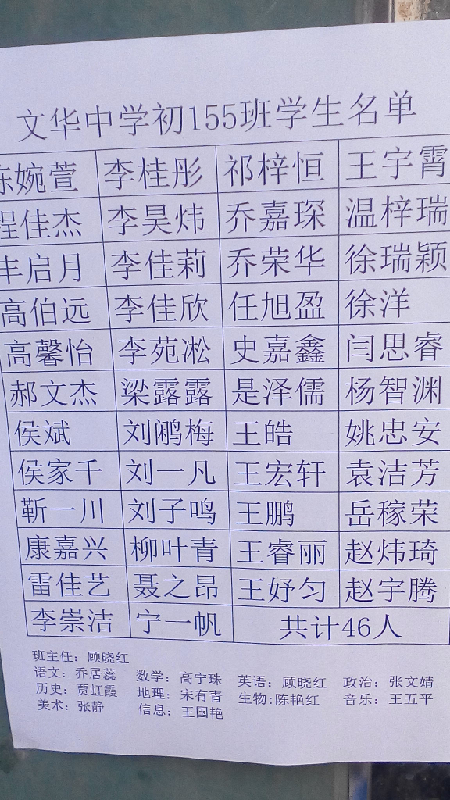 文华中学初155班学生名单
婉萱 李桂彤 祁梓恒 王宇霄
程佳杰 李昊炜 乔嘉琛 温梓瑞
丰启月 李佳莉 乔荣华 徐瑞颖
高伯远 李佳欣 任旭盈 徐洋
高馨怡 李苑凇 史嘉鑫 闫思睿
郝文杰 梁露露 是泽儒 杨智渊
侯斌 刘鹇梅 王皓 姚忠安
侯家千 刘一凡 王宏轩 袁洁芳
靳一川 刘子鸣 王鹏 岳稼荣
康嘉兴 柳叶青 王睿丽 赵炜琦
雷佳艺 聂之昂 王妤匀 赵宇腾
李崇洁 宁一帆 共计46人
班主任：顾晓红
语文：乔居蕊 数学：高宇珠 英语：顾晓红 政治：张文婧
历史：贾江霞 地理：宋有青 生物：陈艳红 音乐：王五平
美术：张静 信息：王国艳